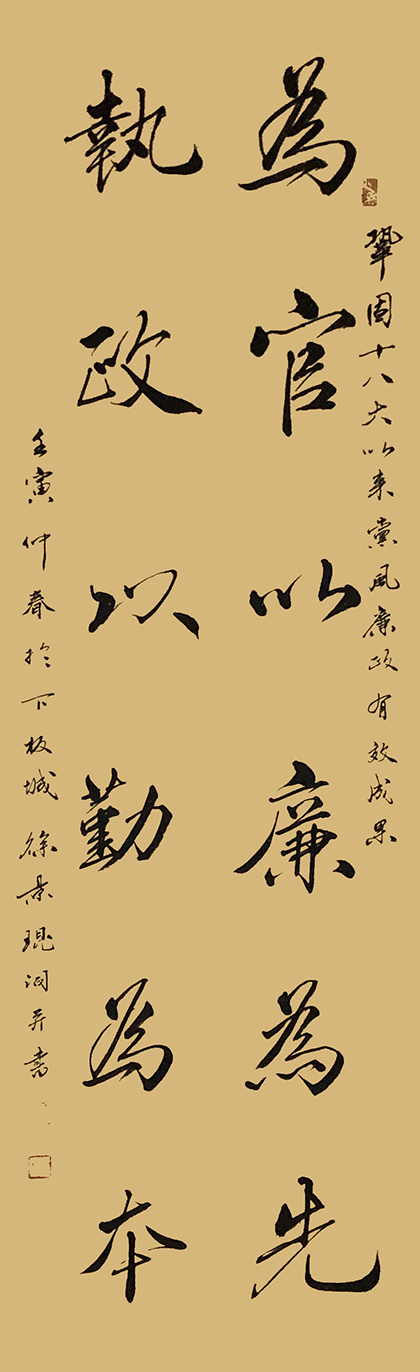 鞏固十八大以来黨風廉政有效成果
為官以廉為先
執政以勤為本
壬寅仲春於下板城徐景琨詞并書